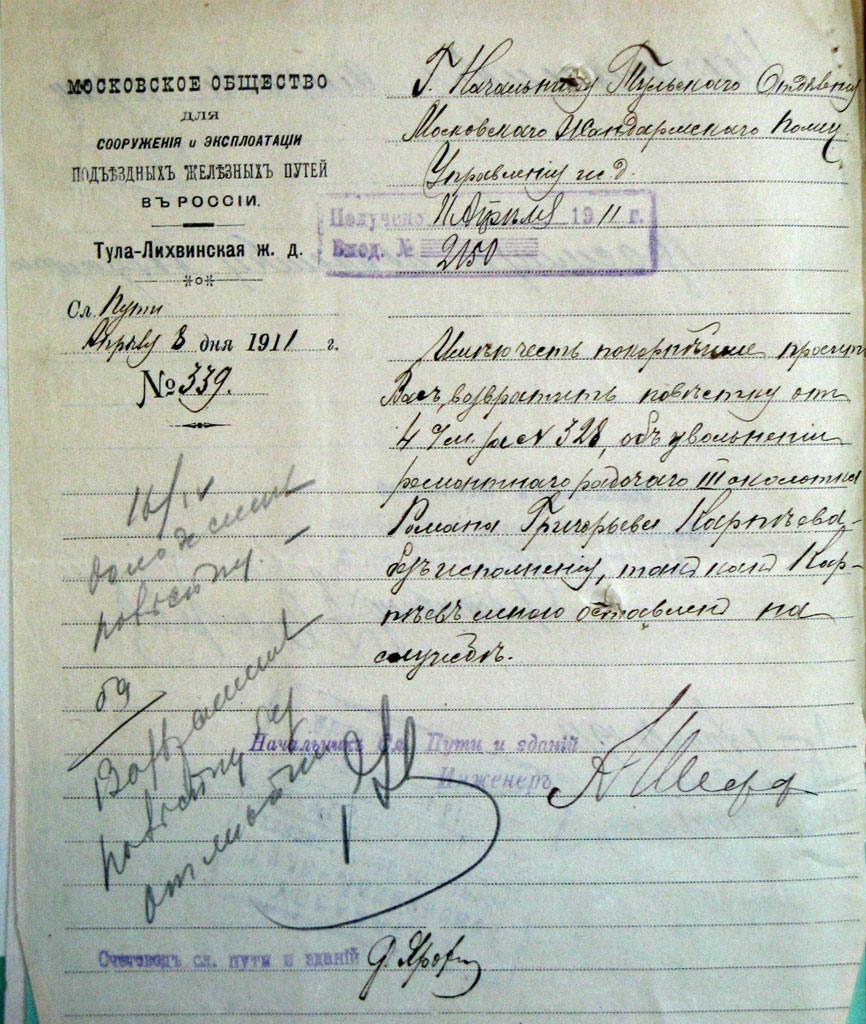 МОСКОВСКОЕ ОБЩЕСТВО
для
СООРУЖЕНІЯ и ЭКСПЛОАТАЦІИ
ПОДЪѢЗДНЫХЪ ЖЕЛѢЗНЫХЪ ПУТЕЙ
ВЪ РОССІИ.
Тула-Лихвинская ж. д.
Сл. Пути
Апрѣля 8 дня 1911 г.
№ 339.
Г. Начальнику Тульскаго Отдѣленія
Московскаго Жандармскаго Полиц.
Управленія ж. д.
Получено 11 Апрѣля 1911 г.
Вход. № 2150
Имѣю честь покорнѣйше просить
Васъ, возвратить повѣстку отъ
4 с/м. за № 328, объ увольненіи
ремонтнаго рабочаго III околотка
Романа Григорьева Карпѣева-
безъ исполненія, такъ какъ Кар-
пѣевъ мною оставленъ на
службѣ.
16/IV
доложить
повѣстку. –
Возвратить
повѣстку безъ
отмѣтки
Начальникъ Сл. Пути и зданій
Инженеръ
Счетоводъ сл. пути и зданій